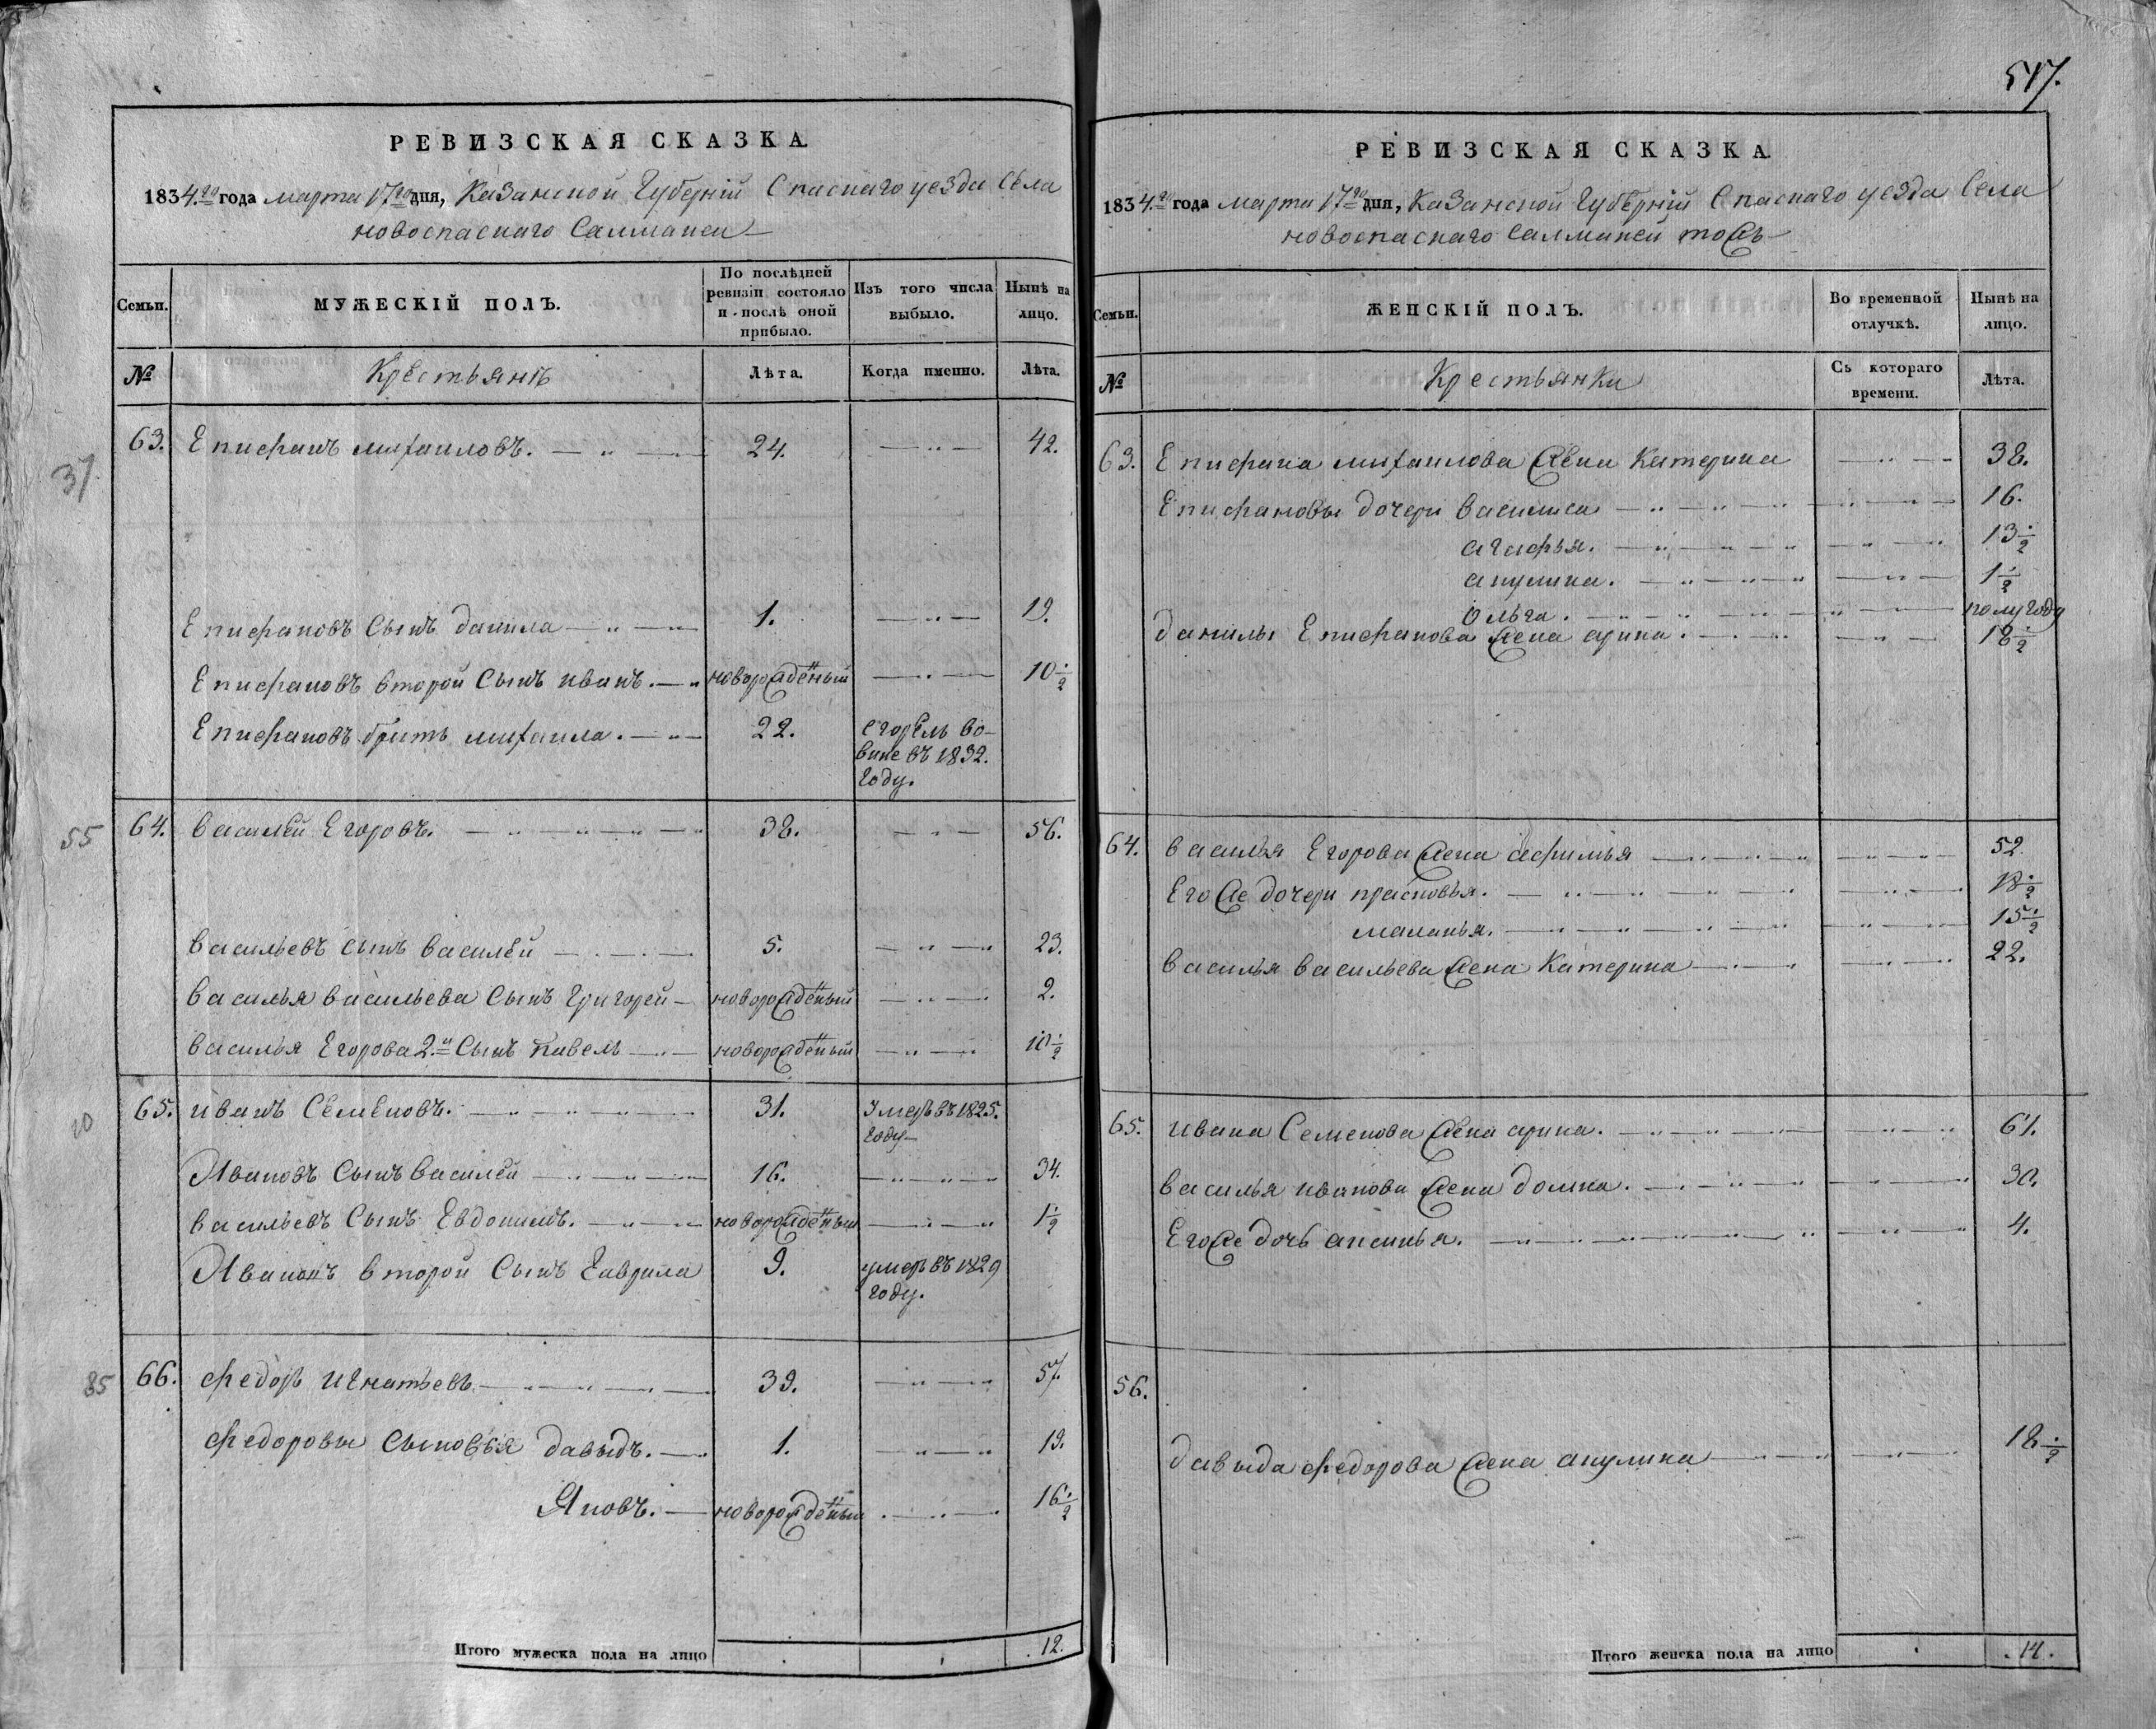 РЕВИЗСКАЯ СКАЗКА
1834.го года марта 17го дня, Казанской Губерній Спаскаго уезда Села
новоспаскаго Салмансы
Семьи.
МУЖЕСКІЙ ПОЛЪ.
По послѣдней ревизіи состояло и послѣ оной прибыло.
Изъ того числа выбыло.
Нынѣ на лицо.
№
Крестьянѣ
Лѣта.
Когда именно.
Лѣта.
37.
63. Епифанъ михаиловъ. 24. 42.
Епифановъ Сынъ данила 1. 19.
Епифановъ второй Сынъ иванъ. новорожденый 10 1/2
Епифановъ братъ михаила. 22. сгорелъ во
вине въ 1832.
году.
55
64. василей Егоровъ. 38. 56.
васильевъ сынъ василей 5. 23.
василья васильева Сынъ Григорей новорожденый 2.
василья Егорова 2.й Сынъ павелъ новорожденый 10 1/2
65. иванъ Семеновъ. 31. Умеръ въ 1825.
году
Ивановъ Сынъ василей 16. 34.
васильевъ Сынъ Евдокимъ. новорожденый 1 1/2
Ивановъ второй Сынъ Гаврила 9. умеръ въ 1829
году.
85
66. федоръ игнатьевъ 39. 57.
федоровы сыновья давыдъ. 1. 19.
Яковъ. новорожденый 16 1/2
Итого мужеска пола на лицо 12.
517.
РЕВИЗСКАЯ СКАЗКА
1834.го года марта 17го дня, Казанской Губерній Спаскаго уезда Села
новоспаскаго салмансы тожъ
Семьи.
ЖЕНСКІЙ ПОЛЪ.
Во временной отлучкѣ.
Нынѣ на лицо.
№
Крестьянки
Съ котораго времени.
Лѣта.
63. Епифана михаилова жена Катерина 38.
Епифановы дочери василиса 16.
агафья. 13 1/2
акулина. 1 1/2
Ольга. полугоду
данилы Епифанова жена арина. 18 1/2
64. василья Егорова жена афимья 52
Его же дочери прасковья. 18 1/2
маланья. 15 1/2
василья васильева жена Катерина 22.
65. ивана Семенова жена арина. 61.
василья иванова жена домна. 30.
Его же дочь аксинья. 4.
56.
давыда федорова жена акулина 18 1/2
Итого женска пола на лицо 14.